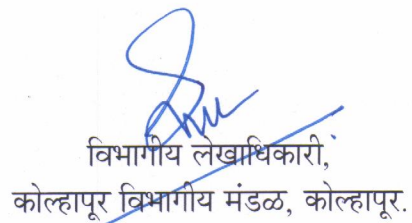 विभागीय लेखाधिकारी,
कोल्हापूर विभागीय मंडळ, कोल्हापूर.